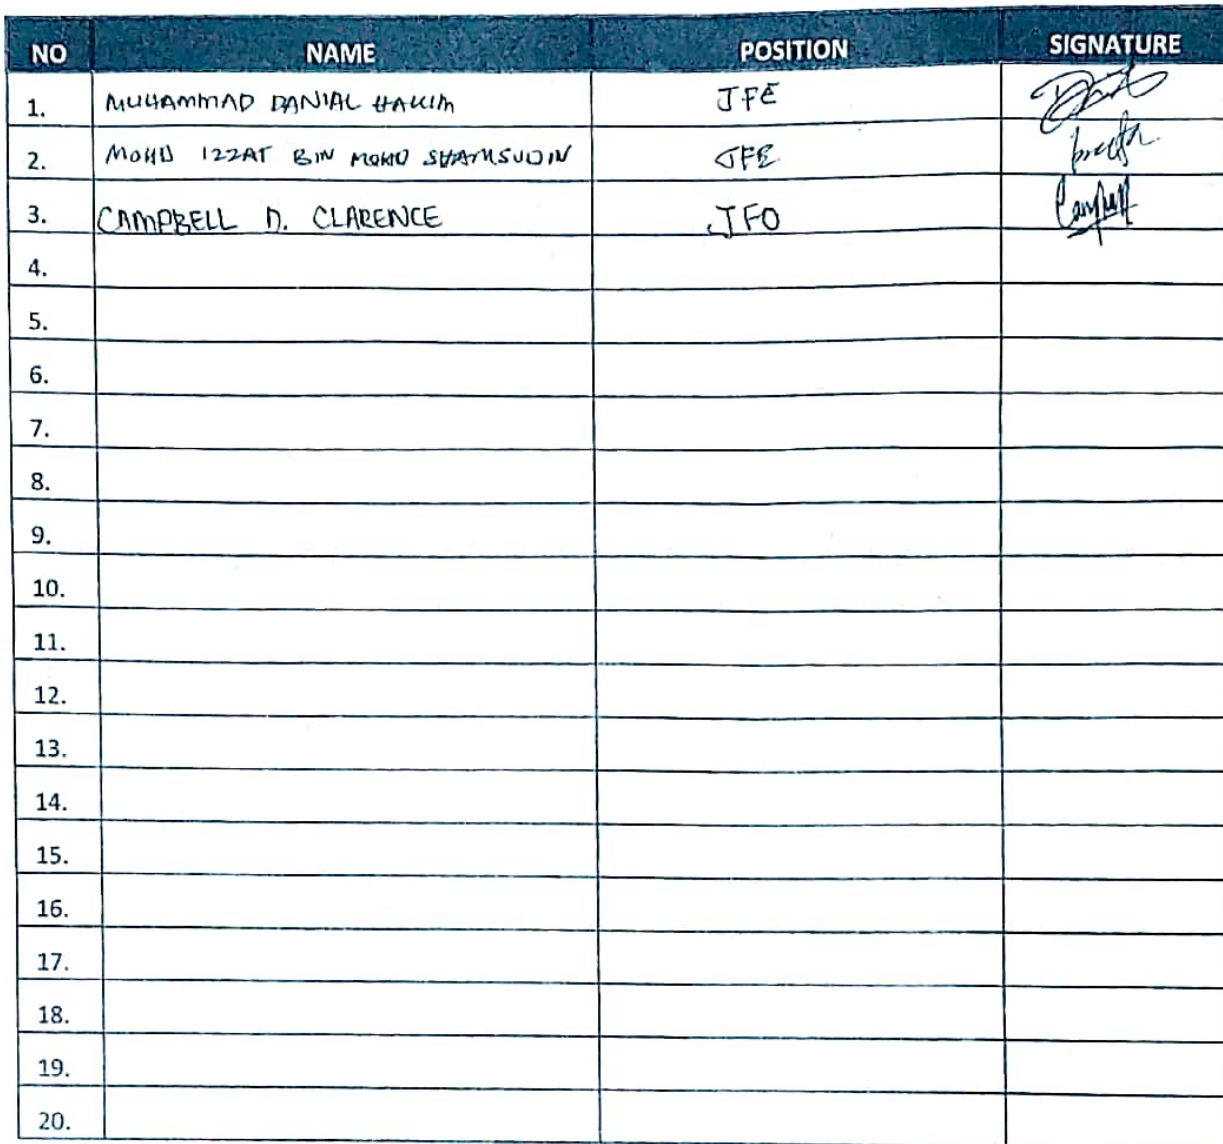 NO NAME POSITION SIGNATURE
1. MUHAMMAD DANIAL HAKIM JFE
2. MOHD IZZAT BIN MOHD SHAMSUDIN JFE
3. CAMPBELL D. CLARENCE JFO Campbell
4.
5.
6.
7.
8.
9.
10.
11.
12.
13.
14.
15.
16.
17.
18.
19.
20.